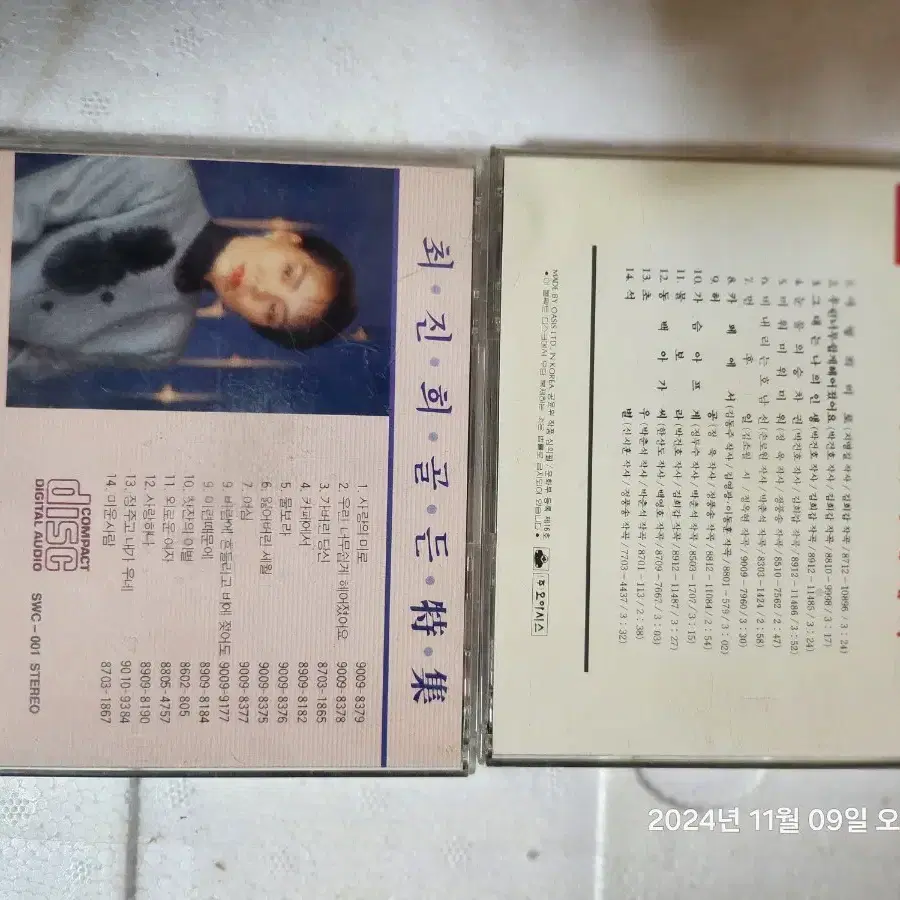 최·진·희·골·든·特·集
1. 사랑의 미로 9009-8379
2. 우린 너무쉽게 헤어졌어요 9009-8378
3. 가버린 당신 8703-1865
4. 카페에서 8909-8182
5. 물보라 9009-8376
6. 잃어버린 세월 9009-8375
7. 여심 9009-8377
9. 바람에 흔들리고 비에 젖어도 9009-9177
9. 미련때문에 8909-8184
10. 찻잔의 이별 8602-805
11. 외로운 여자 8805-4757
12. 사랑하나 8909-8190
13. 정주고 내가 우네 9010-9384
14. 미운사람 8703-1867
COMPACT
disc
DIGITAL AUDIO
SWC-001 STEREO
1. 사랑의 미로(지명길 작사/김희갑 작곡/8712-10896/3:24)
2. 우린너무쉽게헤어졌어요(박건호 작사/김희갑 작곡/8810-9998/3:17)
3. 그대는 나의 인생(박건호 작사/김희갑 작곡/8912-11485/3:24)
4. 눈물의 승차권(박건호 작사/김희갑 작곡/8912-11486/3:52)
5. 미워미워미워(정욱 작사/정풍송 작곡/8510-7562/2:47)
6. 비내리는 호남선(손로원 작사/박춘석 작곡/8303-1424/2:58)
7. 먼 후 일(김소월 시/정옥현 작곡/9009-7960/3:30)
8. 카페에서(김동주 작사/김영광·이동훈 작곡/8801-579/3:02)
9. 허 공(정욱 작사/정풍송 작곡/8812-11084/2:54)
10. 가슴아프게(정두수 작사/박춘석 작곡/8503-1707/3:15)
11. 물보라(박건호 작사/김희갑 작곡/8912-11487/3:27)
12. 동백아가씨(한산도 작사/백영호 작곡/8709-7667/3:03)
13. 초 우(박춘석 작사/박춘석 작곡/8701-113/2:38)
14. 석 별(진시몬 작사/정풍송 작곡/7703-4437/3:32)
MADE BY OASIS LTD. IN KOREA 공연윤 작품 심의필/문화부 등록 제16호
금지되어 있습니다●
㈜오아시스
2024년 11월 09일 오